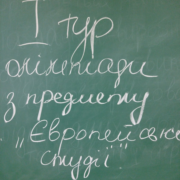 I тур
олімпіади
з предмету
„Європейські
студії"